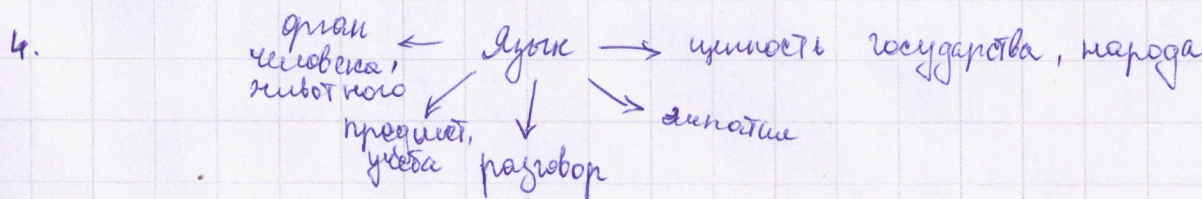 4.
орган
человека,
животного
Язык
ценность государства, народа
предмет,
учёба
разговор
эмпатия